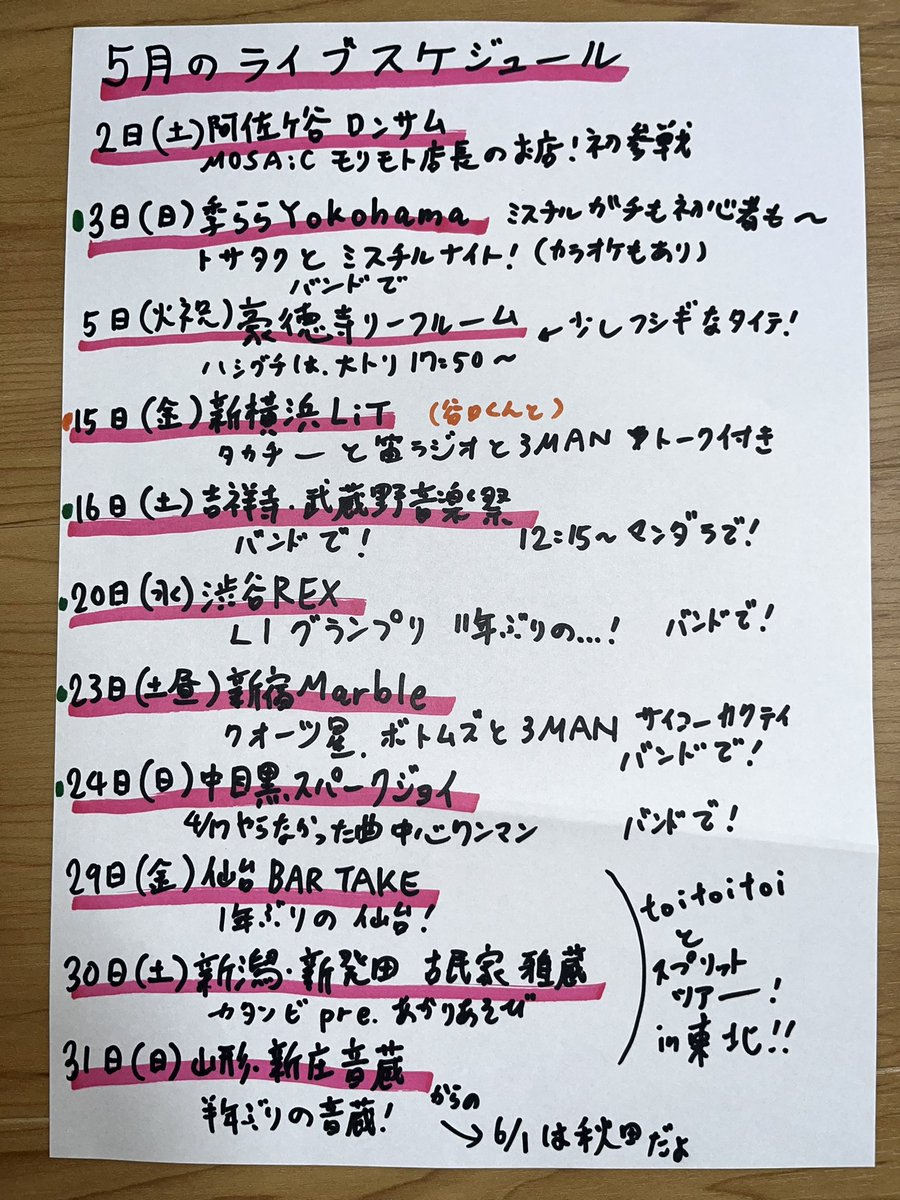 5月のライブスケジュール
2日(土)阿佐ヶ谷 ロンサム
MOSAiC モリモト店長のお店!初参戦
3日(日)季ららYokohama ミスチルガチも初心者も〜
トサタクと ミスチルナイト!(カラオケもあり)
バンドで
5日(火祝)豪徳寺リーフルーム ←少しフシギなタイテ!
ハシグチは、大トリ 17:50〜
15日(金)新横浜LiT (谷口くんと)
タカチーと笛ラジオと3MAN トーク付き
16日(土)吉祥寺・武蔵野音楽祭
バンドで! 12:15〜マンダラで!
20日(水)渋谷REX
L1グランプリ 11年ぶりの...! バンドで!
23日(土昼)新宿Marble
クオーツ星、ボトムズと3MAN サイコーカクテイ
バンドで!
24日(日)中目黒スパークジョイ
4/17やらなかった曲中心ワンマン バンドで!
29日(金)仙台BAR TAKE
1年ぶりの仙台!
30日(土)新潟・新発田 古民家 雅蔵
カタンビpre. あかりあそび
31日(日)山形・新庄音蔵
半年ぶりの音蔵! からの
→6/1は秋田だよ
toitoitoi
と
スプリット
ツアー!
in東北!!